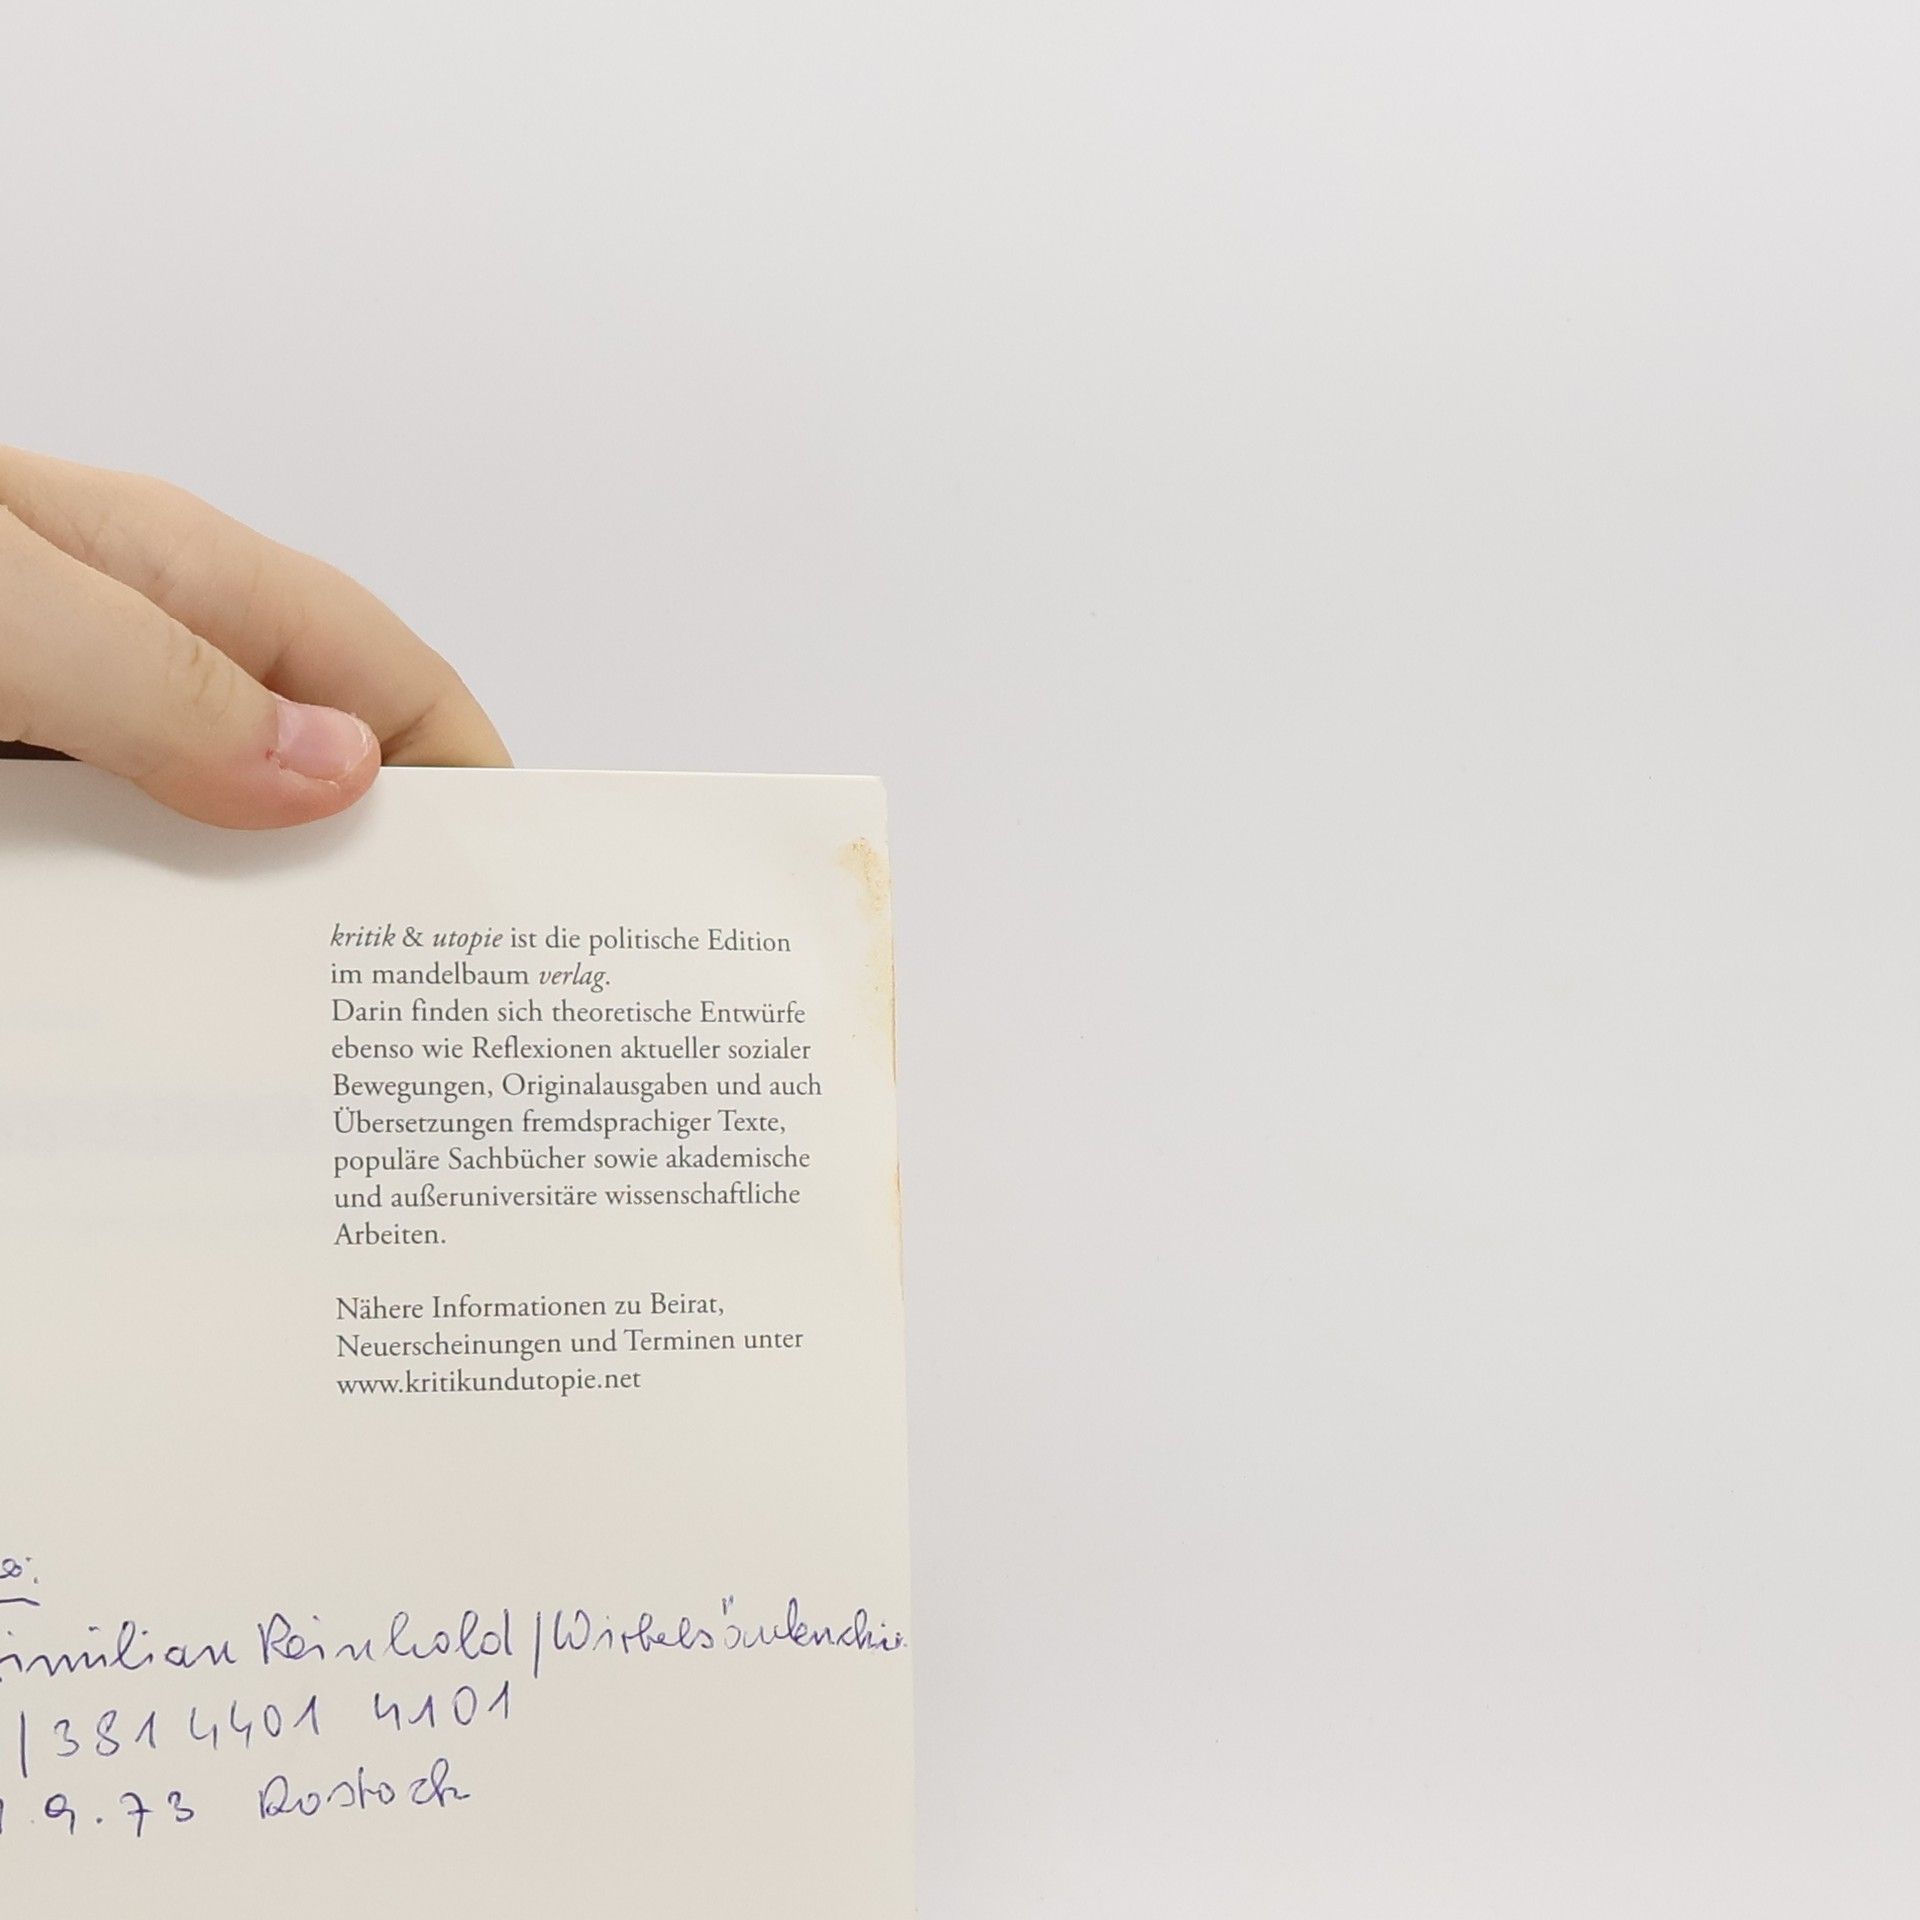 kritik & utopie ist die politische Edition
im mandelbaum verlag.
Darin finden sich theoretische Entwürfe
ebenso wie Reflexionen aktueller sozialer
Bewegungen, Originalausgaben und auch
Übersetzungen fremdsprachiger Texte,
populäre Sachbücher sowie akademische
und außeruniversitäre wissenschaftliche
Arbeiten.
Nähere Informationen zu Beirat,
Neuerscheinungen und Terminen unter
www.kritikundutopie.net
imilian Reinhold / Wirbelsäulenchir.
| 381 4401 4101
.9.73 Rostock